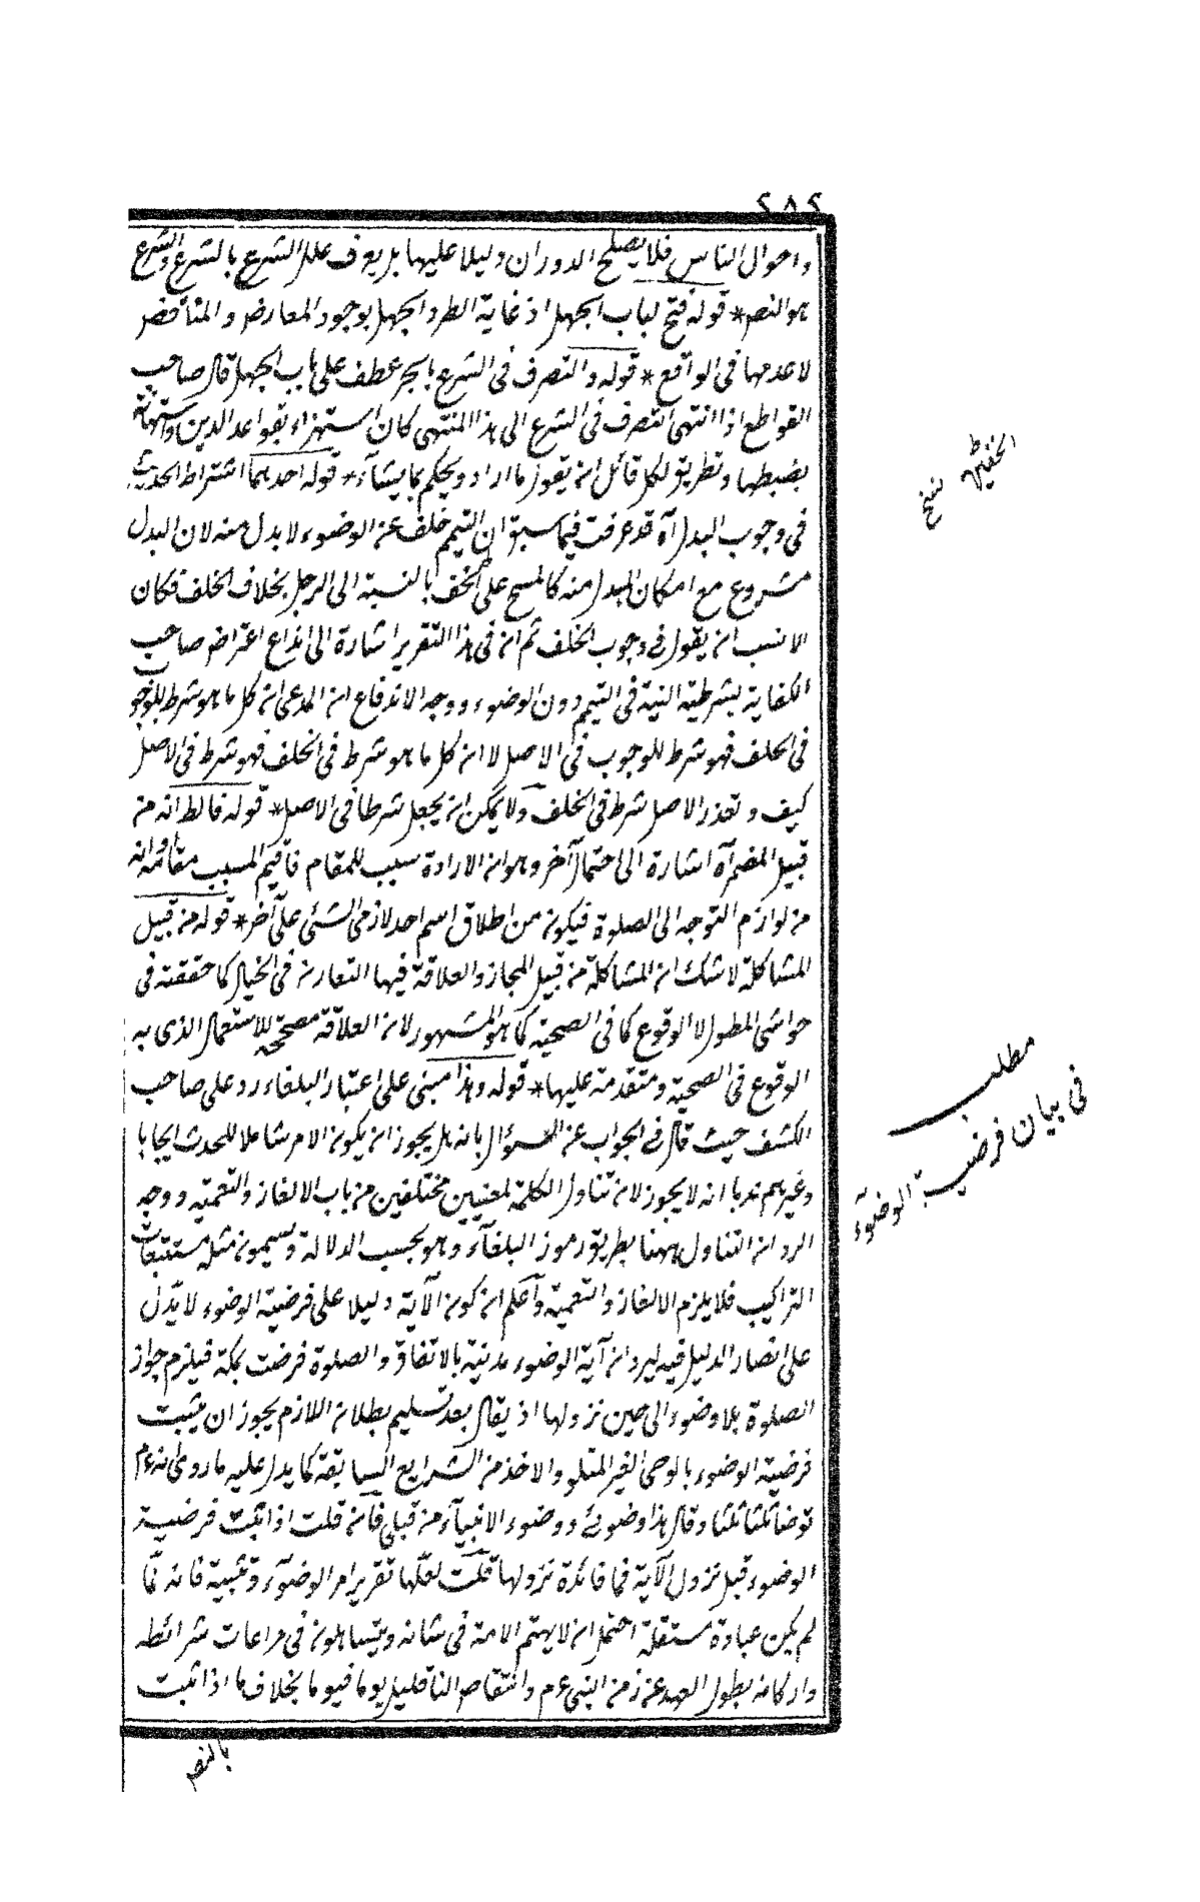 ٢٨٢
واحوال الناس فلا يصلح الدوران دليلا عليها بل يعرف علل الشرع بالشرع والشرع
هو النص * قوله فتح لباب الجهل اذ غاية الطرد الجهل بوجود المعارض والمناقض
لا عدمها فى الواقع * قوله والتصرف فى الشرع بالجر عطف على باب الجهل قال صاحب
القواطع اذا انتهى التصرف فى الشرع الى هذا المنتهى كان استهزاء بقواعد الدين واستهانة
بضبطها وتطريق لكل قائل ان يقول ما اراد ويحكم بما يشاء * قوله احدهما اشتراط الحدث
فى وجوب البدل آه قد عرفت فيما سبق ان التيمم خلف عن الوضوء لا بدل منه لان البدل
مشروع مع امكان المبدل منه كالمسح على الخف بالنسبة الى الرجل بخلاف الخلف فكان
الانسب ان يقول فى وجوب الخلف ثم ان فى هذا التقرير اشارة الى اندفاع اعتراض صاحب
الكفاية بشرطية النية فى التيمم دون الوضوء ووجه الاندفاع ان المدعى ان كل ما هو شرط للوجوب
فى الخلف فهو شرط للوجوب فى الاصل لا ان كل ما هو شرط فى الخلف فهو شرط فى الاصل
كيف وتعذر الاصل شرط فى الخلف ولا يمكن ان يجعل شرطا فى الاصل * قوله انه من
قبيل المضمر آه اشارة الى احتمال آخر وهو ان الارادة سبب للمقام فاقيم المسبب مقامه وانه
من لوازم التوجه الى الصلوة فيكون من اطلاق اسم احد لازمى الشئ على آخر * قوله من قبيل
المشاكلة لا شك ان المشاكلة من قبيل المجاز والعلاقة فيها التقارن فى الخيال كما حققته فى
حواشى المطول لا الوقوع كما فى الصحبة كما هو المشهور لان العلاقة مصححة للاستعمال الذى به
الوقوع فى الصحبة ومتقدمة عليها * قوله وهذا مبنى على اعتبار البلغاء رد على صاحب
الكشف حيث قال فى الجواب عن السؤال بانه هل يجوز ان يكون الامر شاملا للحدث ايجابا
وغيرهم ندبا انه لا يجوز لان تناول الكلمة لمعنيين مختلفين من باب الالغاز والتعمية ووجه
الرد ان التناول ههنا بطريق رموز البلغاء وهو بحسب الدلالة ويسمون مثله مستتبعات
التراكيب فلا يلزم الالغاز والتعمية واعلم ان كون الآية دليلا على فرضية الوضوء لا يدل
على انحصار الدليل فيه ليرد ان آية الوضوء مدنية بالاتفاق والصلوة فرضت بمكة فيلزم جواز
الصلوة بلا وضوء الى حين نزولها اذ يقال بعد تسليم بطلان اللازم يجوز ان يثبت
فرضية الوضوء بالوحى الغير المتلو والاخذ من الشرايع السابقة كما يدل عليه ما روى انه عم
توضأ ثلثا ثلثا وقال هذا وضوئى ووضوء الانبيآء من قبلى فان قلت اذا ثبت فرضية
الوضوء قبل نزول الآية فما فائدة نزولها قلت لعلها تقرير امر الوضوء وتثبيته فانه لما
لم يكن عبادة مستقلة احتمل ان لا يهتم الامة فى شانه ويتساهلون فى مراعات شرائطه
واركانه بطول العهد عن زمن النبى عم وانتقاص الناقلين يوما فيوما بخلاف ما اذا ثبت
بالنص
الخفين نسخ
مطلب
فى بيان فرضية الوضوء